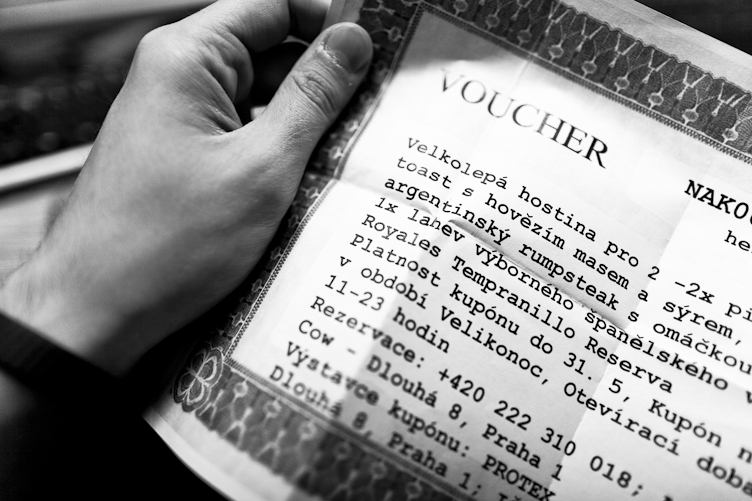 VOUCHER
NAKO
he
Velkolepá hostina pro 2 -2x pi
toast s hovězím masem a sýrem,
argentinský rumpsteak s omáčkou
1x lahev výborného španělského v
Royales Tempranillo Reserva
Platnost kupónu do 31. 5, Kupón n
v období Velikonoc, Otevírací doba
11-23 hodin
Rezervace: +420 222 310 018;
Cow - Dlouhá 8, Praha 1
Výstavce kupónu: PROTEX
Dlouhá 8, Praha 1;